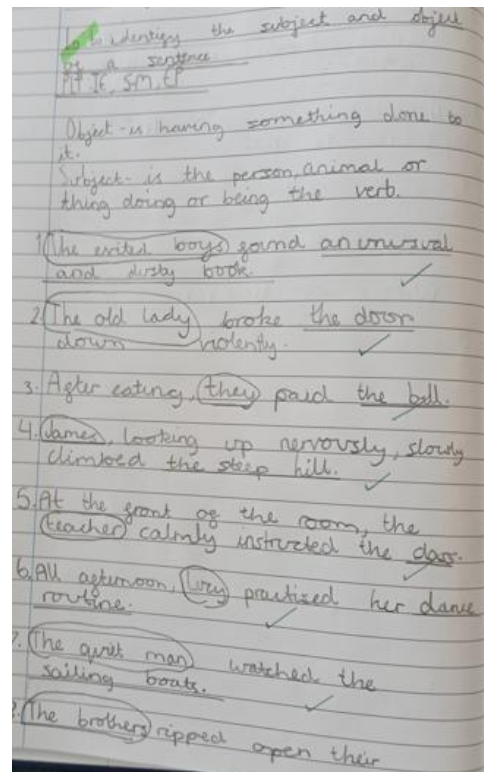 Lo To identify the subject and object
of a sentence
PLT IE, SM, EP
Object - is having something done to
it.
Subject - is the person, animal or
thing doing or being the verb.
1. The exited boys found an unusual
and dusty book.
2. The old lady broke the door
down violently.
3. After eating, they paid the bill.
4. James, looking up nervously, slowly
climbed the steep hill.
5. At the front of the room, the
teacher calmly instructed the class.
6. All afternoon, Lucy practised her dance
routine.
7. The quiet man watched the
sailing boats.
8. The brothers ripped open their